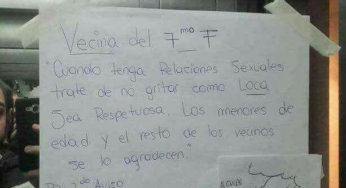 Vecina del 7mo F
"Cuando tenga Relaciones Sexuales
trate de no gritar como Loca
Sea Respetuosa. Los menores de
edad y el resto de los vecinos
se lo agradecen."
Aviso